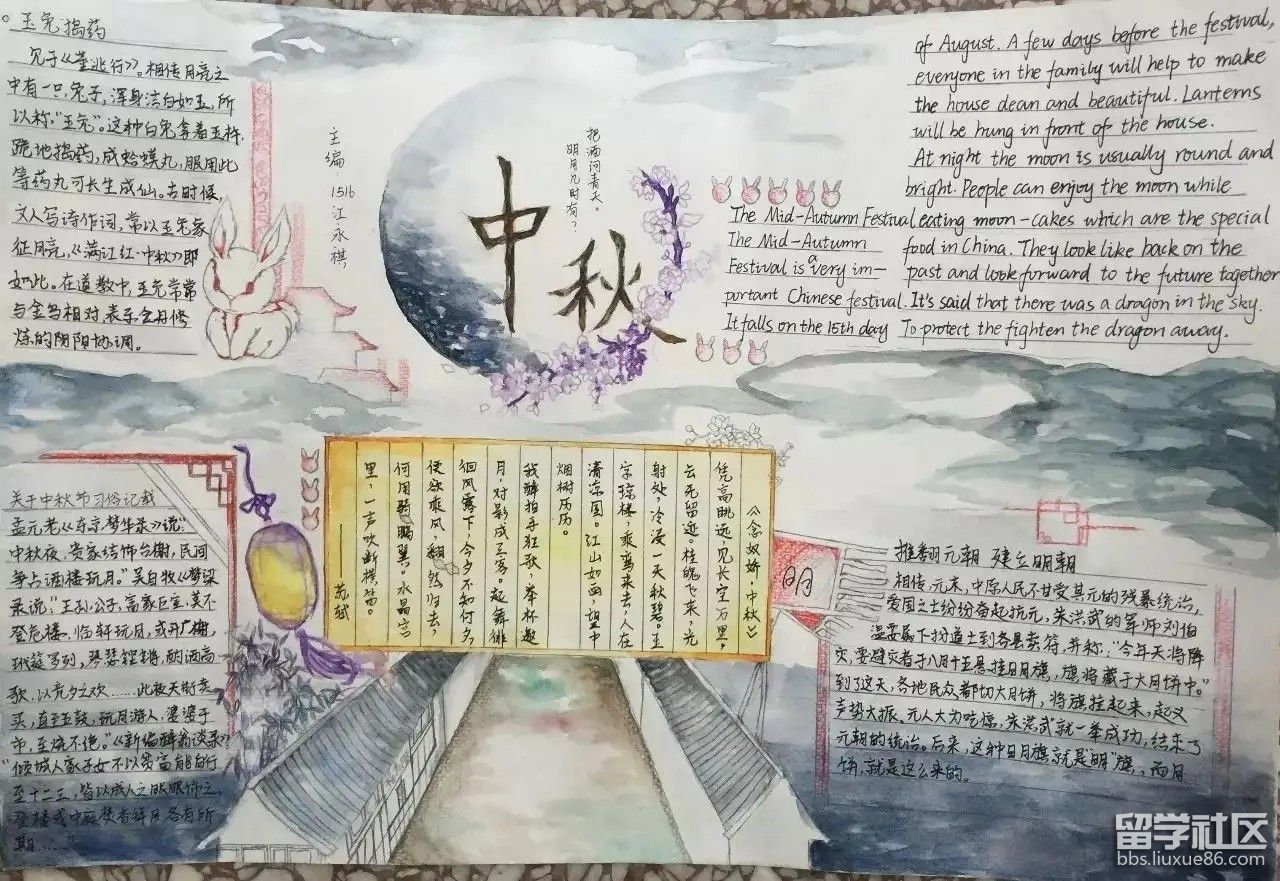 玉兔捣药
见于《董逃行》。相传月亮之
中有一只兔子，浑身洁白如玉，所
以称"玉兔"。这种白兔拿着玉杵，
跪地捣药，成蛤蟆丸，服用此
等药丸可长生成仙。古时候，
文人写诗作词，常以玉兔象
征月亮，《满江红·中秋》即
如此。在道教中，玉兔常常
与金乌相对，表示金丹修
炼的阴阳协调。
主编：1516江永棋
明月几时有？
把酒问青天。
中秋
The Mid-Autumn Festival
The Mid-Autumn
Festival is a very im-
portant Chinese festival.
It falls on the 15th day
of August. A few days before the festival,
everyone in the family will help to make
the house dean and beautiful. Lanterns
will be hung in front of the house.
At night the moon is usually round and
bright. People can enjoy the moon while
eating moon-cakes which are the special
food in China. They look like back on the
past and look forward to the future together
It's said that there was a dragon in the sky.
To protect the fighten the dragon away.
关于中秋节习俗记载
孟元老《东京梦华录》说："
中秋夜，贵家结饰台榭，民间
争占酒楼玩月。"吴自牧《梦梁
录说："王孙公子，富家巨室，莫不
登危楼，临轩玩月，或开广榭，
玳筵罗列，琴瑟铿锵，酌酒高
歌，以竞夕之欢……此夜天街卖
买，直至五鼓，玩月游人，婆娑于
市，至烧不绝。"《新编醉翁谈录》
"倾城人家子女不以贫富能自行
至十二三，皆以成人之服服饰之，
登楼或中庭焚香拜月，各有所
期……"
《念奴娇·中秋》
凭高眺远，见长空万里，
云无留迹。桂魄飞来，光
射处，冷浸一天秋碧。玉
宇琼楼，乘鸾来去，人在
清凉国。江山如画，望中
烟树历历。
我醉拍手狂歌，举杯邀
月，对影成三客。起舞徘
徊风露下，今夕不知何夕，
便欲乘风，翻然归去，
何用骑鹏翼。水晶宫
里，一声吹断横笛。
——苏轼
明
推翻元朝 建立明朝
相传，元末，中原人民不甘受其元的残暴统治，
爱国之士纷纷奋起抗元，朱洪武的军师刘伯
温委属下扮道士到各县卖符，并称："今年天将降
灾，要避灾者于八月十五悬挂日月旗，旗将藏于大月饼中。"
到了这天，各地民众都切大月饼，将旗挂起来，起义
声势大振，元人大为吃惊，朱洪武就一举成功，结束了
元朝的统治。后来，这种日月旗，就是"明"旗，而月
饼，就是这么来的。
留学社区
bbs.liuxue86.com